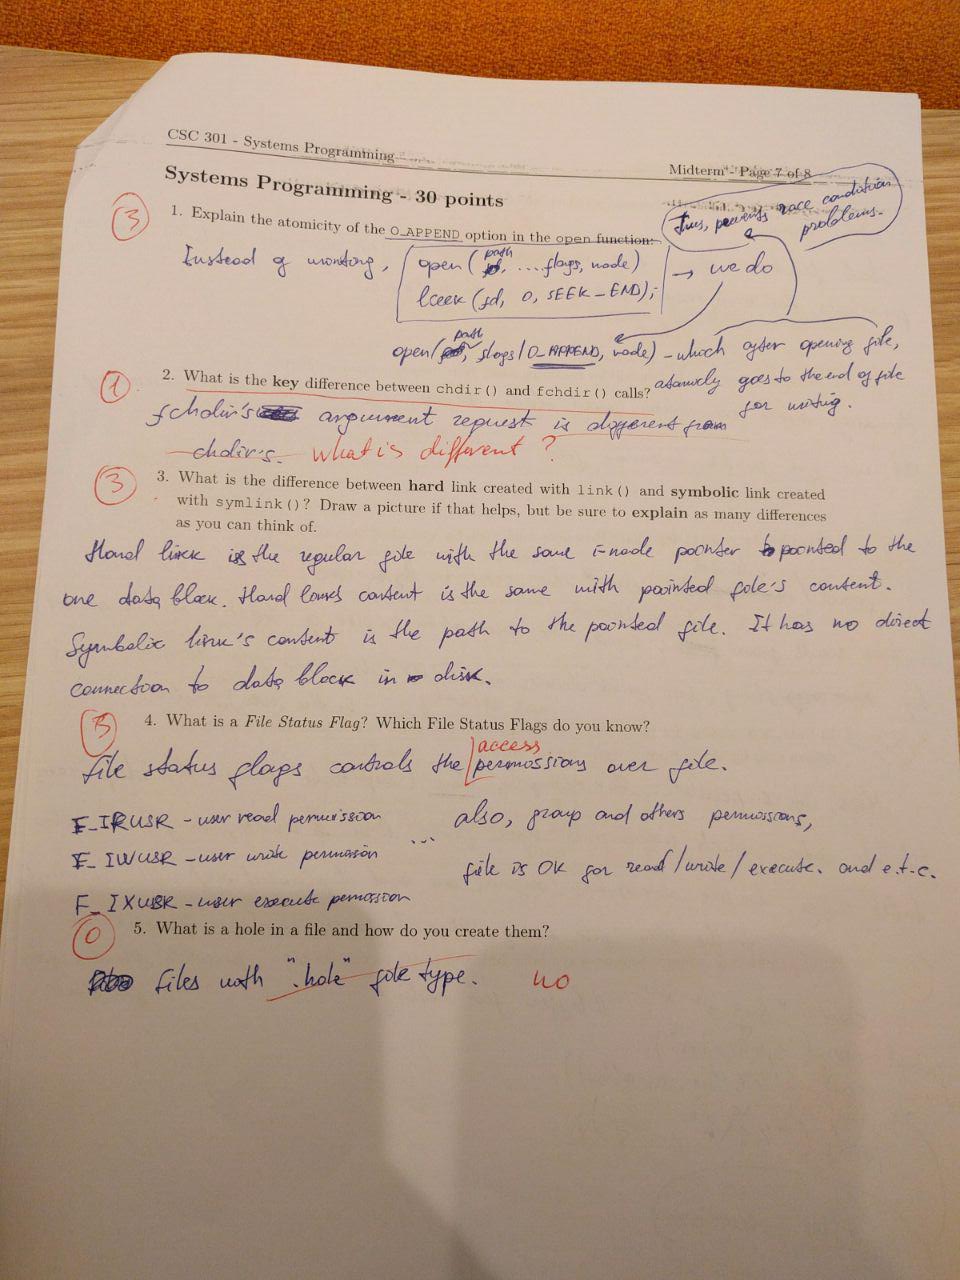 CSC 301 - Systems Programming
Midterm - Page 7 of 8
Systems Programming - 30 points
Thus, prevents race condition
problems.
3
1. Explain the atomicity of the O_APPEND option in the open function:
Instead of writing, open (path, ....flags, mode) → we do
lseek (fd, 0, SEEK_END);
open (path, flags/O_APPEND, mode) - which after opening file,
atomicly goes to the end of file
for writing.
1
2. What is the key difference between chdir() and fchdir() calls?
fchdir's argument request is different from
chdir's. What is different?
3
3. What is the difference between hard link created with link() and symbolic link created
with symlink()? Draw a picture if that helps, but be sure to explain as many differences
as you can think of.
Hard link is the regular file with the same i-node pointer pointed to the
one data block. Hard content is the same with pointed file's content.
Symbolic link's content is the path to the pointed file. It has no direct
connection to data block in disk.
4. What is a File Status Flag? Which File Status Flags do you know?
access
File status flags controls the permissions over file.
F_IRUSR - user read permission
also, group and others permissions,
F_IWUSR - user write permission ...
file is OK for read/write/execute. and e.t.c.
F_IXUSR - user execute permission
0
5. What is a hole in a file and how do you create them?
files with ".hole" file type. no